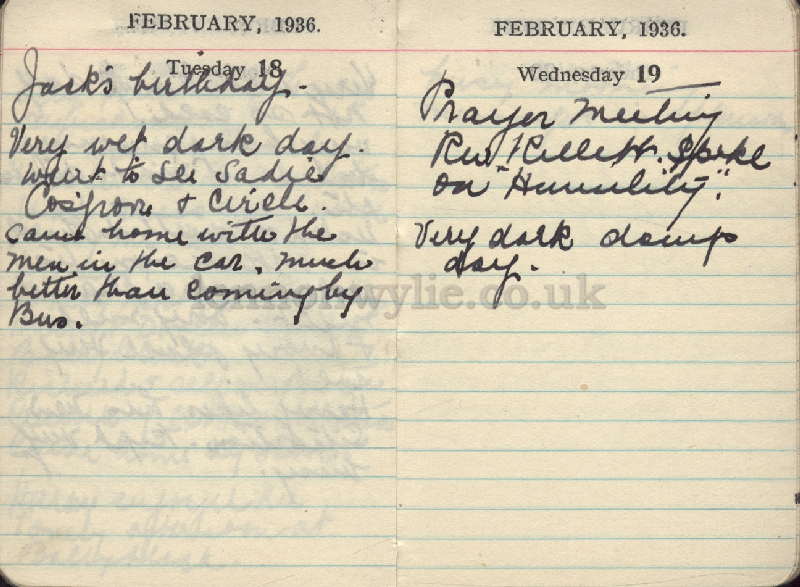 FEBRUARY, 1936.
Tuesday 18
Jack's birthday.
Very wet dark day.
Went to see Sadie
Cosgrove & Circle.
Came home with the
men in the car, much
better than coming by
Bus.
FEBRUARY, 1936.
Wednesday 19
Prayer Meeting
Rev Kellett. Spoke
on "Humility".
Very dark damp
day.
lennonwylie.co.uk